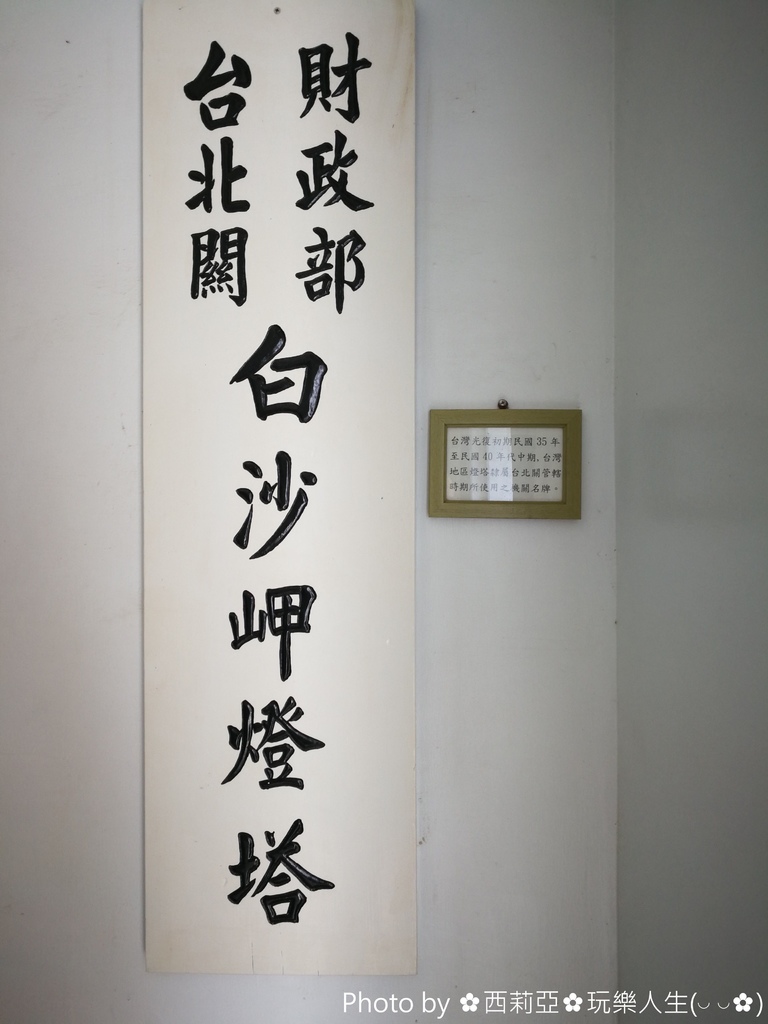 財政部
台北關
白沙岬燈塔
台灣光復初期民國 35 年
至民國 40 年代中期，台灣
地區燈塔隸屬台北關管轄
時期所使用之機關名牌。
Photo by ✿西莉亞✿玩樂人生(◡ ◡✿)